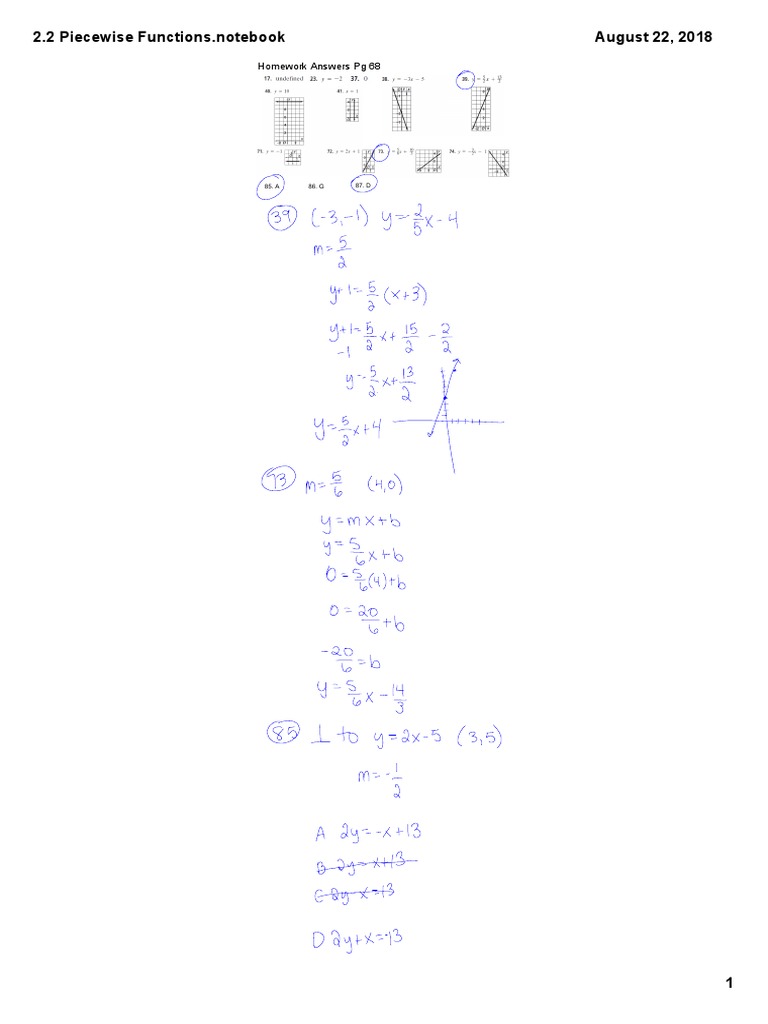 2.2 Piecewise Functions.notebook
August 22, 2018
Homework Answers Pg 68
17. undefined 23. y = −2 37. 0 38. y = −3x − 5 39.
40. y = 10 41. x = 1
71. y = −1 72. y = 2x + 1 73. 74.
85. A 86. G 87. D
39 (-3,-1) y=2/5x-4
m=5/2
y+1=5/2(x+3)
y+1=5/2x+15/2 -2/2
-1
y=5/2x+13/2
y=5/2x+4
73 m=5/6 (4,0)
y=mx+b
y=5/6x+b
0=5/6(4)+b
0=20/6+b
-20/6=b
y=5/6x-14/3
85 ⊥ to y=2x-5 (3,5)
m=-1/2
A 2y=-x+13
B 2y=x+13
C 2y-x=13
D 2y+x=-13
1